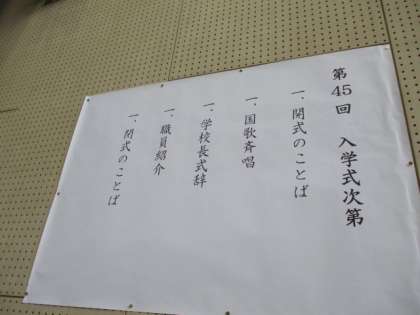 第45回 入学式次第
一、開式のことば
一、国歌斉唱
一、学校長式辞
一、職員紹介
一、閉式のことば